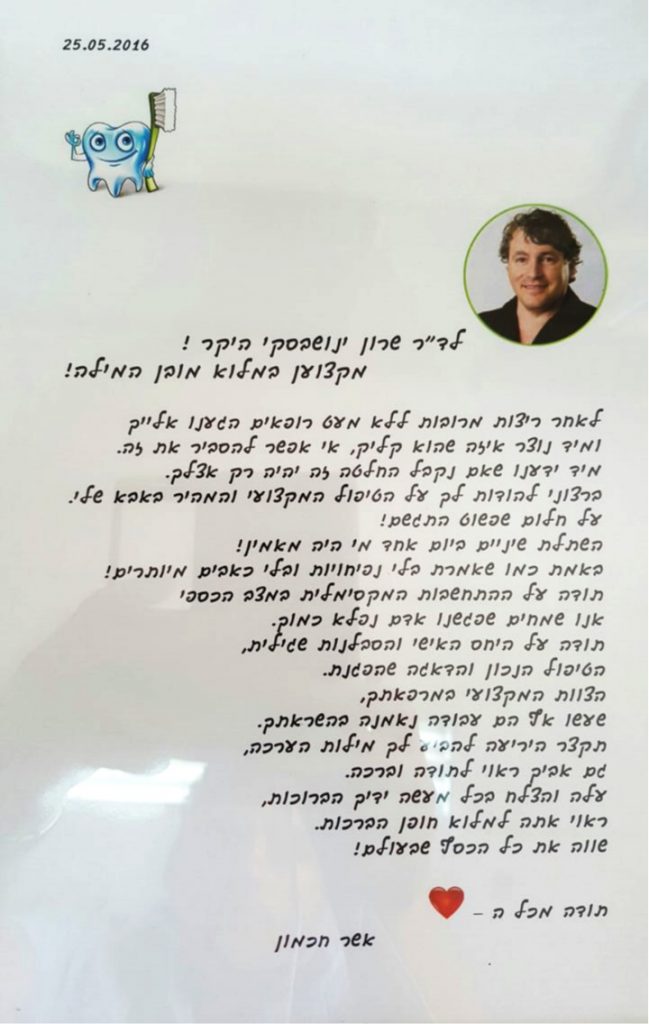 25.05.2016
לד״ר שרון ינושבסקי היקר !
מקצוען במלוא מובן המילה!
לאחר ריצות מרובות ללא מעט רופאים הגענו אלייך
ומיד נוצר איזה שהוא קליק, אי אפשר להסביר את זה.
מיד ידענו שאם נקבל החלטה זה יהיה רק אצלך.
ברצוני להודות לך על הטיפול המקצועי והמהיר באבא שלי.
על חלום שפשוט התגשם!
השתלת שיניים ביום אחד מי היה מאמין!
באמת כמו שאמרת בלי נפיחויות ובלי כאבים מיותרים!
תודה על ההתחשבות המקסימלית במצב הכספי
אנו שמחים שפגשנו אדם נפלא כמוך.
תודה על היחס האישי והסבלנות שגילית,
הטיפול הנכון והדאגה שהפגנת.
הצוות המקצועי במרפאתך,
שעשו אף הם עבודה נאמנה בהשראתך.
תקצר היריעה להביע לך מילות הערכה,
גם אביך ראוי לתודה וברכה.
עלה והצלח בכל מעשה ידיך הברוכות,
ראוי אתה למלוא חופן הברכות.
שווה את כל הכסף שבעולם!
תודה מכל ה -
אשר חכמון